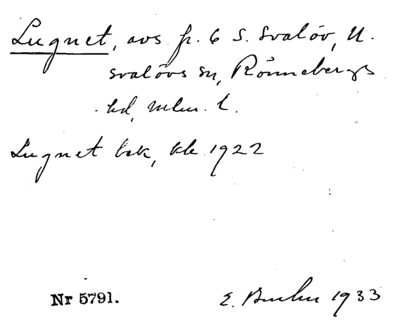 Lugnet, avs. fr. 6 S. Svalöv, N.
Svalövs sn, Rönnebergs
hd, Mlm. l.
Lugnet bok, kk 1922
Nr 5791.
E. 1933